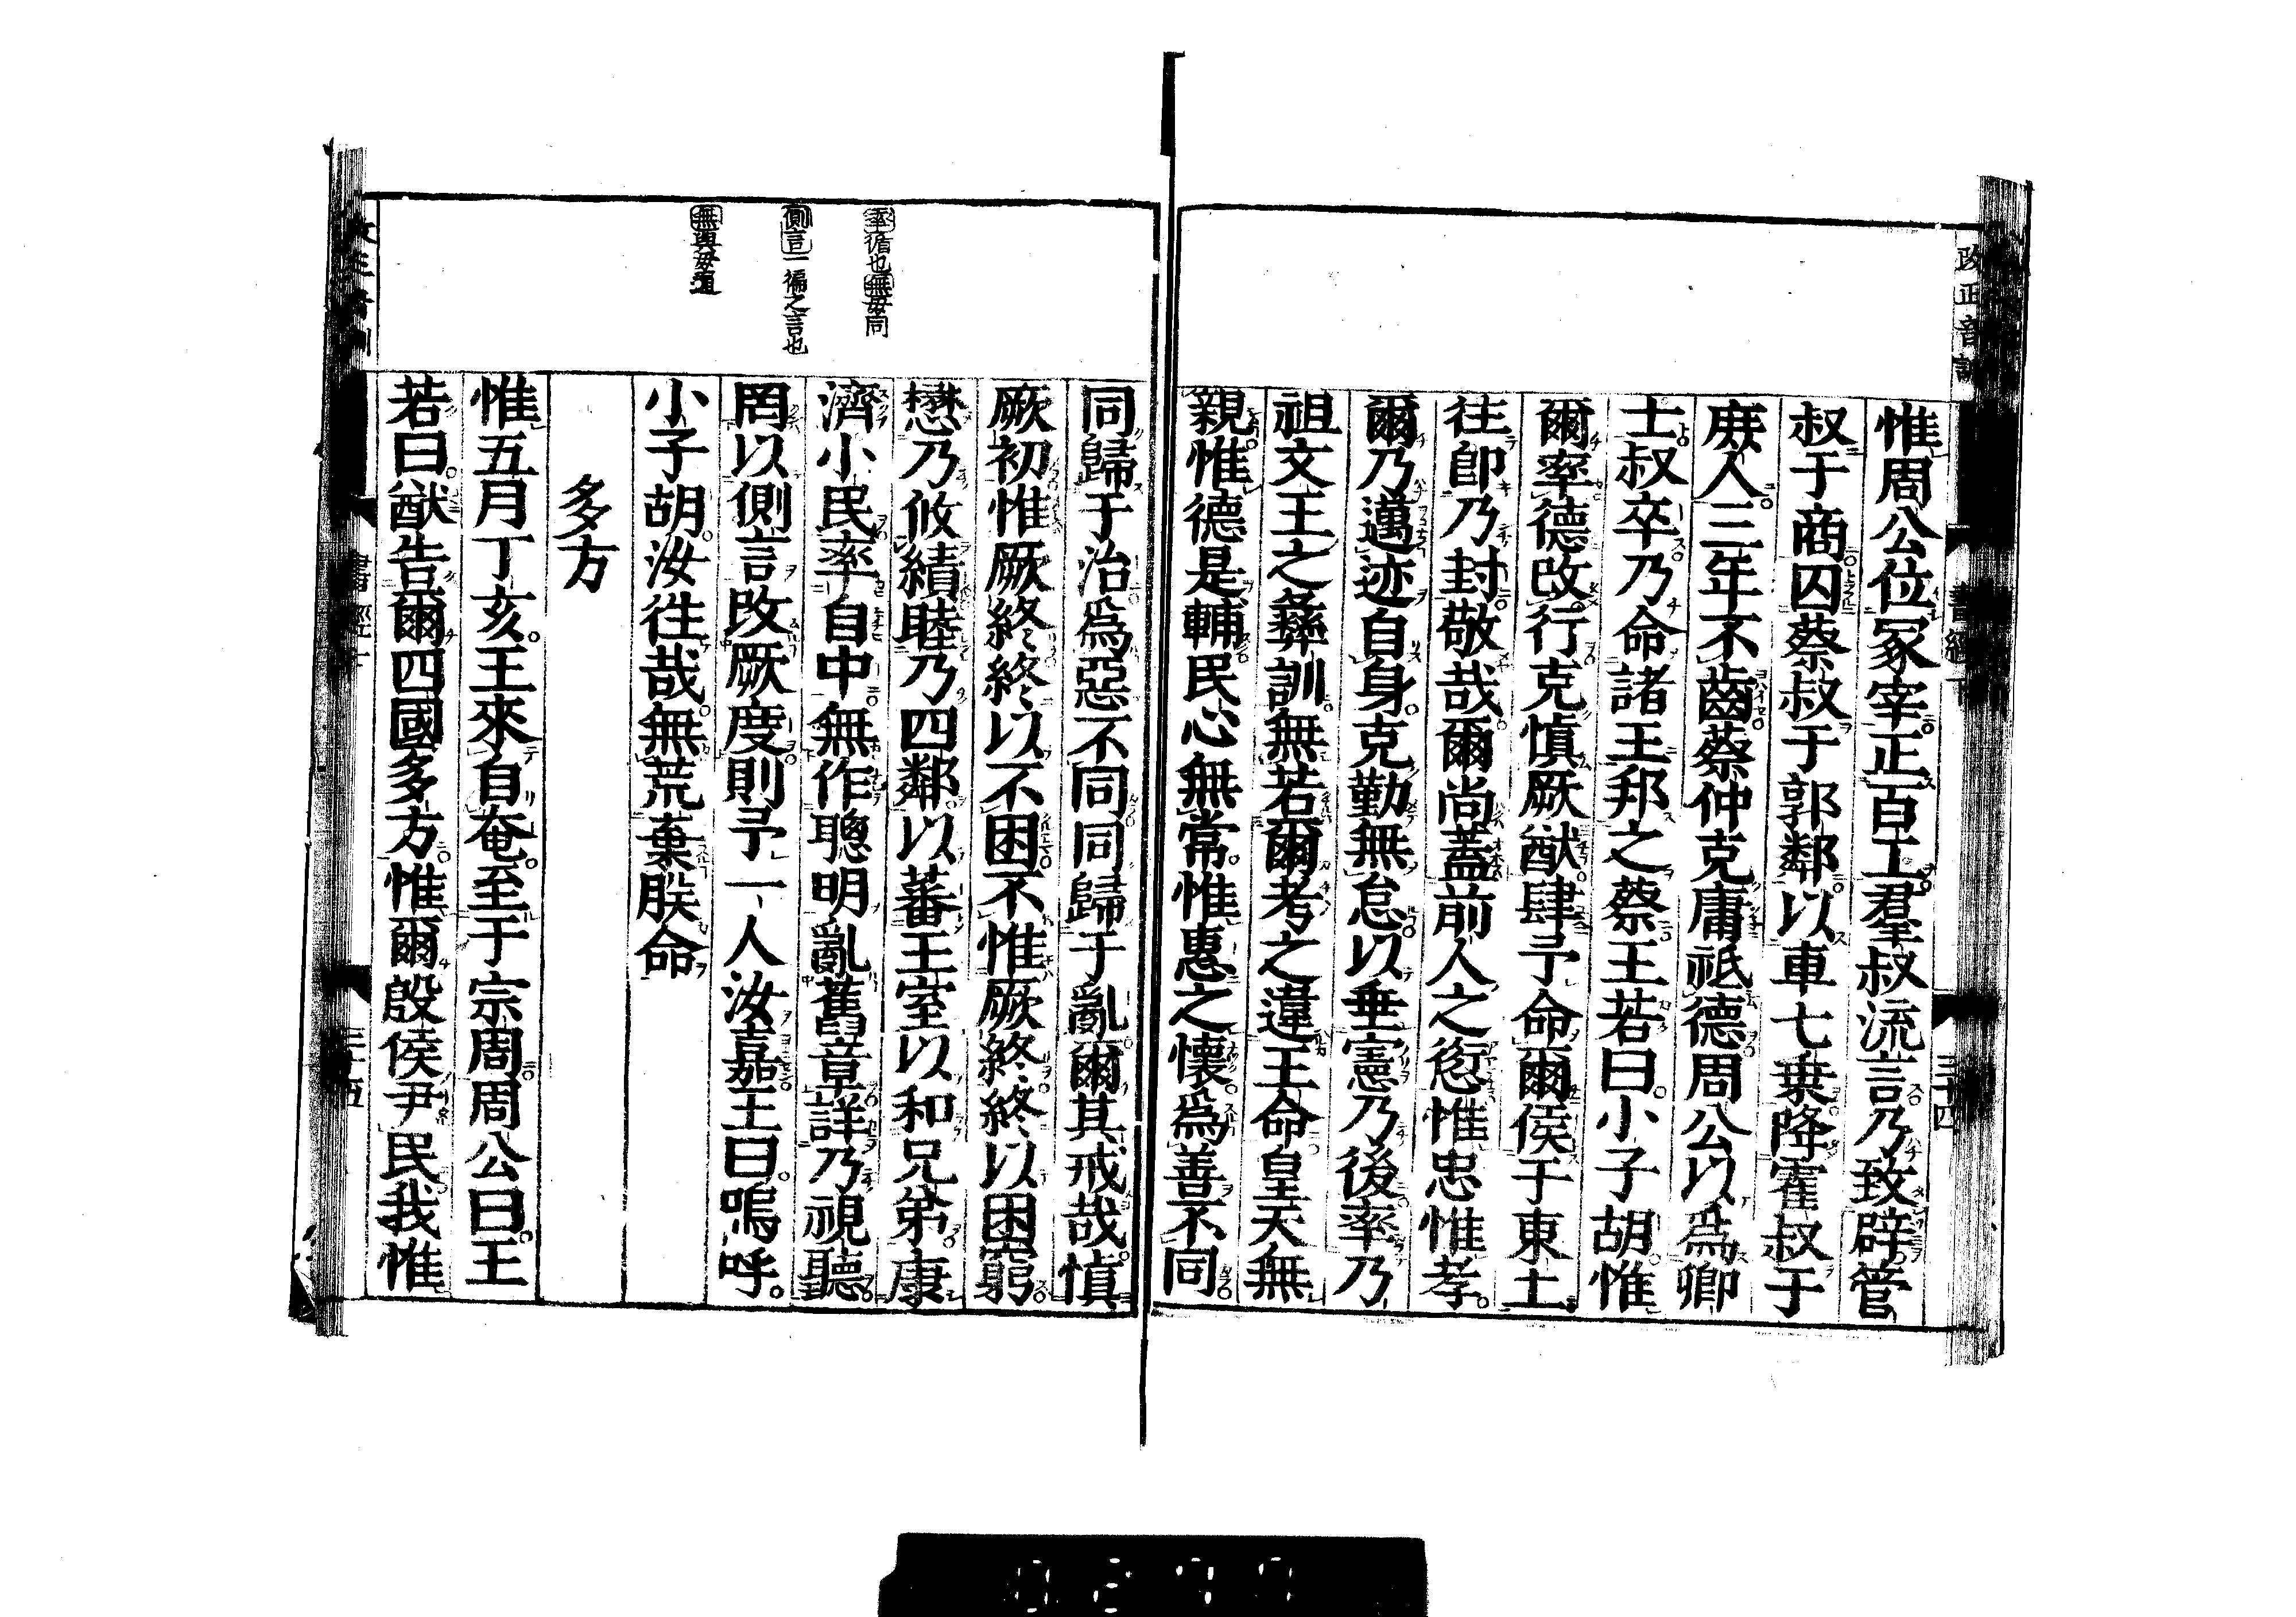 改正音訓
書經下
三十四
惟周公位冢宰正百工羣叔流言乃致辟管
叔于商囚蔡叔于郭鄰以車七乗降霍叔于
庻人三年不齒蔡仲克庸祗德周公以爲卿
士叔卒乃命諸王邦之蔡王若曰小子胡惟
爾率德改行克愼厥猷肆予命爾侯于東土
往卽乃封敬哉爾尚蓋前人之愆惟忠惟孝
爾乃邁迹自身克勤無怠以垂憲乃後率乃
祖文王之彝訓無若爾考之違王命皇天無
親惟德是輔民心無常惟惠之懷爲善不同
同歸于治爲惡不同同歸于亂爾其戒哉愼
厥初惟厥終終以不困不惟厥終終以困窮
懋乃攸績睦乃四鄰以蕃王室以和兄弟康
濟小民率自中無作聰明亂舊章詳乃視聽
罔以側言改厥度則予一人汝嘉王曰嗚呼
小子胡汝往哉無荒棄朕命
多方
惟五月丁亥王來自奄至于宗周周公曰王
若曰猷告爾四國多方惟爾殷侯尹民我惟
率循也無毋同
側言一偏之言也
無與毋通
三十五